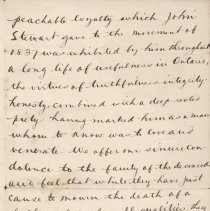 peachable loyalty which John
Stewart gave to the movement of
1837 was exhibited by him throughout
a long life of usefulness in Ontario,
the virtues of truthfulness integrity
honesty, combined with a deep rooted
piety having marked him as a man
whom to know was to love and
venerate. We offer our sincere con-
dolence to the family of the deceased
and feel that while they have just
cause to mourn the death of a
qualities they